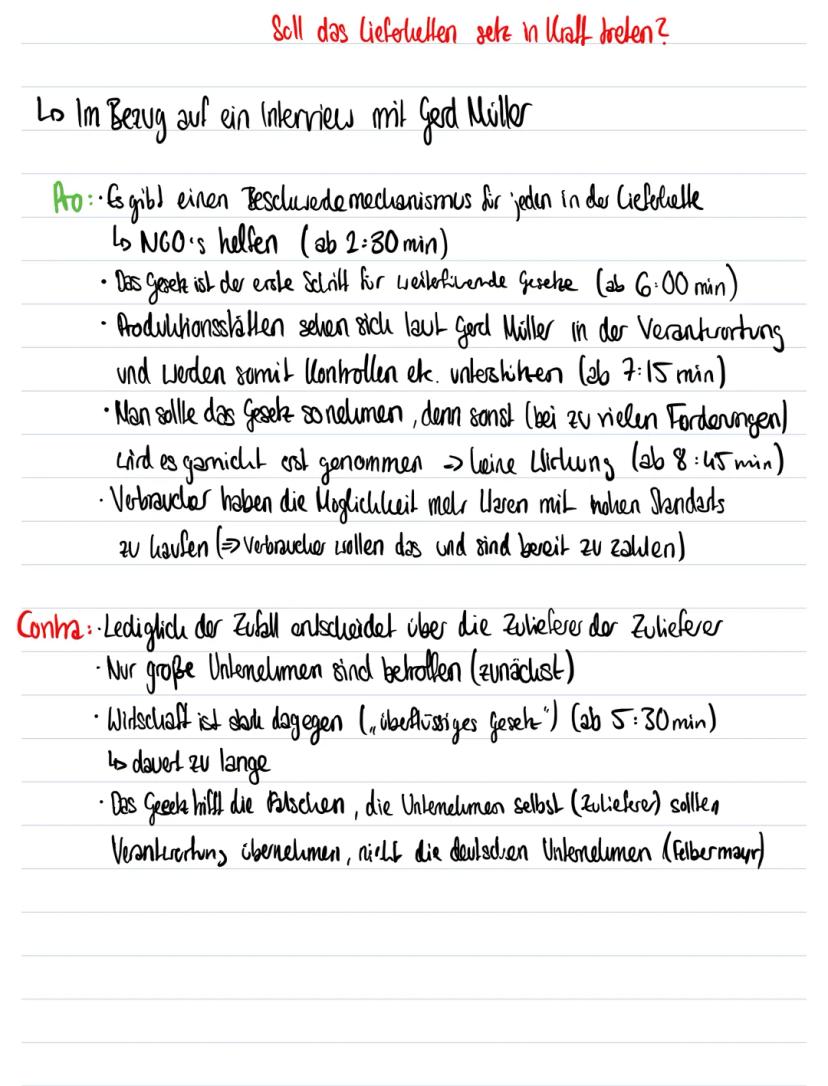 Soll das Lieferketten setz in Kraft treten?
↳ Im Bezug auf ein Interview mit Gerd Müller
Pro: · Es gibt einen Beschwerdemechanismus für jeden in der Lieferkette
↳ NGO's helfen (ab 2:30 min)
· Das Gesetz ist der erste Schritt für weiterführende Gesetze (ab 6:00 min)
· Produktionsstätten sehen sich laut Gerd Müller in der Verantwortung
und werden somit Kontrollen etc. unterstützen (ab 7:15 min)
· Man sollte das Gesetz so nehmen, denn sonst (bei zu vielen Forderungen)
wird es garnicht erst genommen => keine Wirkung (ab 8:45 min)
· Verbraucher haben die Möglichkeit mehr Waren mit hohen Standards
zu kaufen (=> Verbraucher wollen das und sind bereit zu zahlen)
Contra: · Lediglich der Zufall entscheidet über die Zulieferer der Zulieferer
· Nur große Unternehmen sind betroffen (zunächst)
· Wirtschaft ist stark dagegen („überflüssiges Gesetz") (ab 5:30 min)
↳ dauert zu lange
· Das Gesetz trifft die Falschen, die Unternehmen selbst (Zulieferer) sollten
Verantwortung übernehmen, nicht die deutschen Unternehmen (Felbermayr)